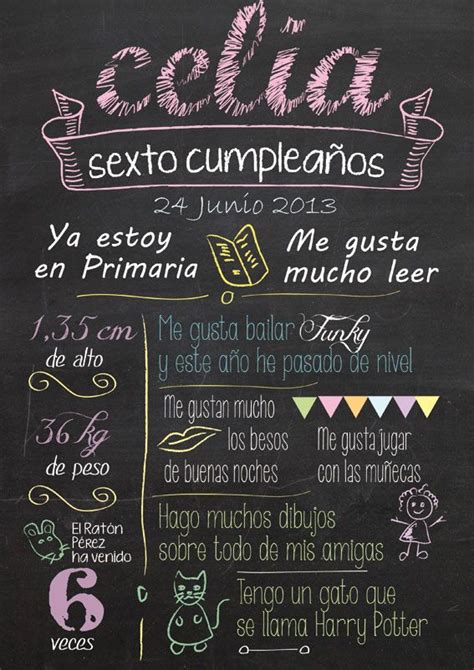 celia
sexto cumpleaños
24 Junio 2013
Ya estoy
en Primaria
Me gusta
mucho leer
1,35 cm
de alto
Me gusta bailar Funky
y este año he pasado de nivel
36 kg
de peso
Me gustan mucho
los besos
de buenas noches
Me gusta jugar
con las muñecas
El Ratón
Pérez
ha venido
6
veces
Hago muchos dibujos
sobre todo de mis amigas
Tengo un gato que
se llama Harry Potter